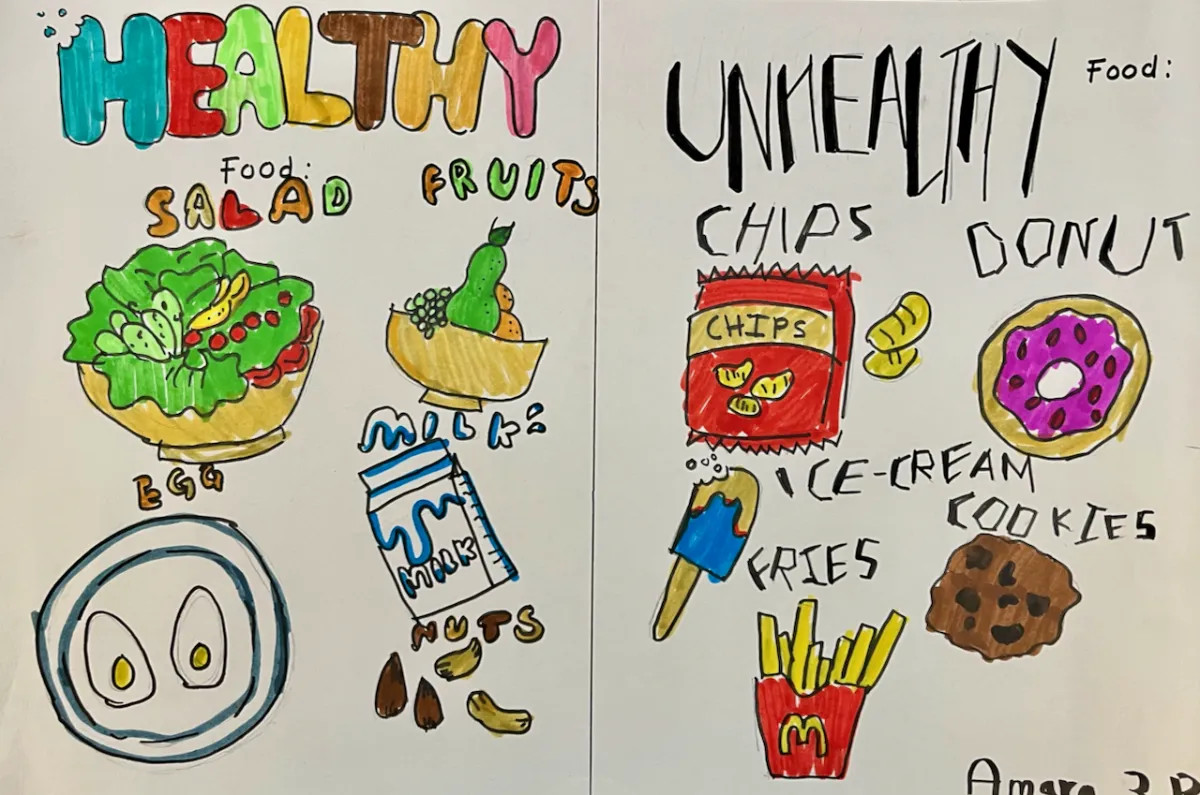 HEALTHY
Food:
SALAD
FRUITS
MILK
MILK
EGG
NUTS
UNHEALTHY Food:
CHIPS
DONUT
CHIPS
ICE-CREAM
COOKIES
FRIES
M
Amara 3